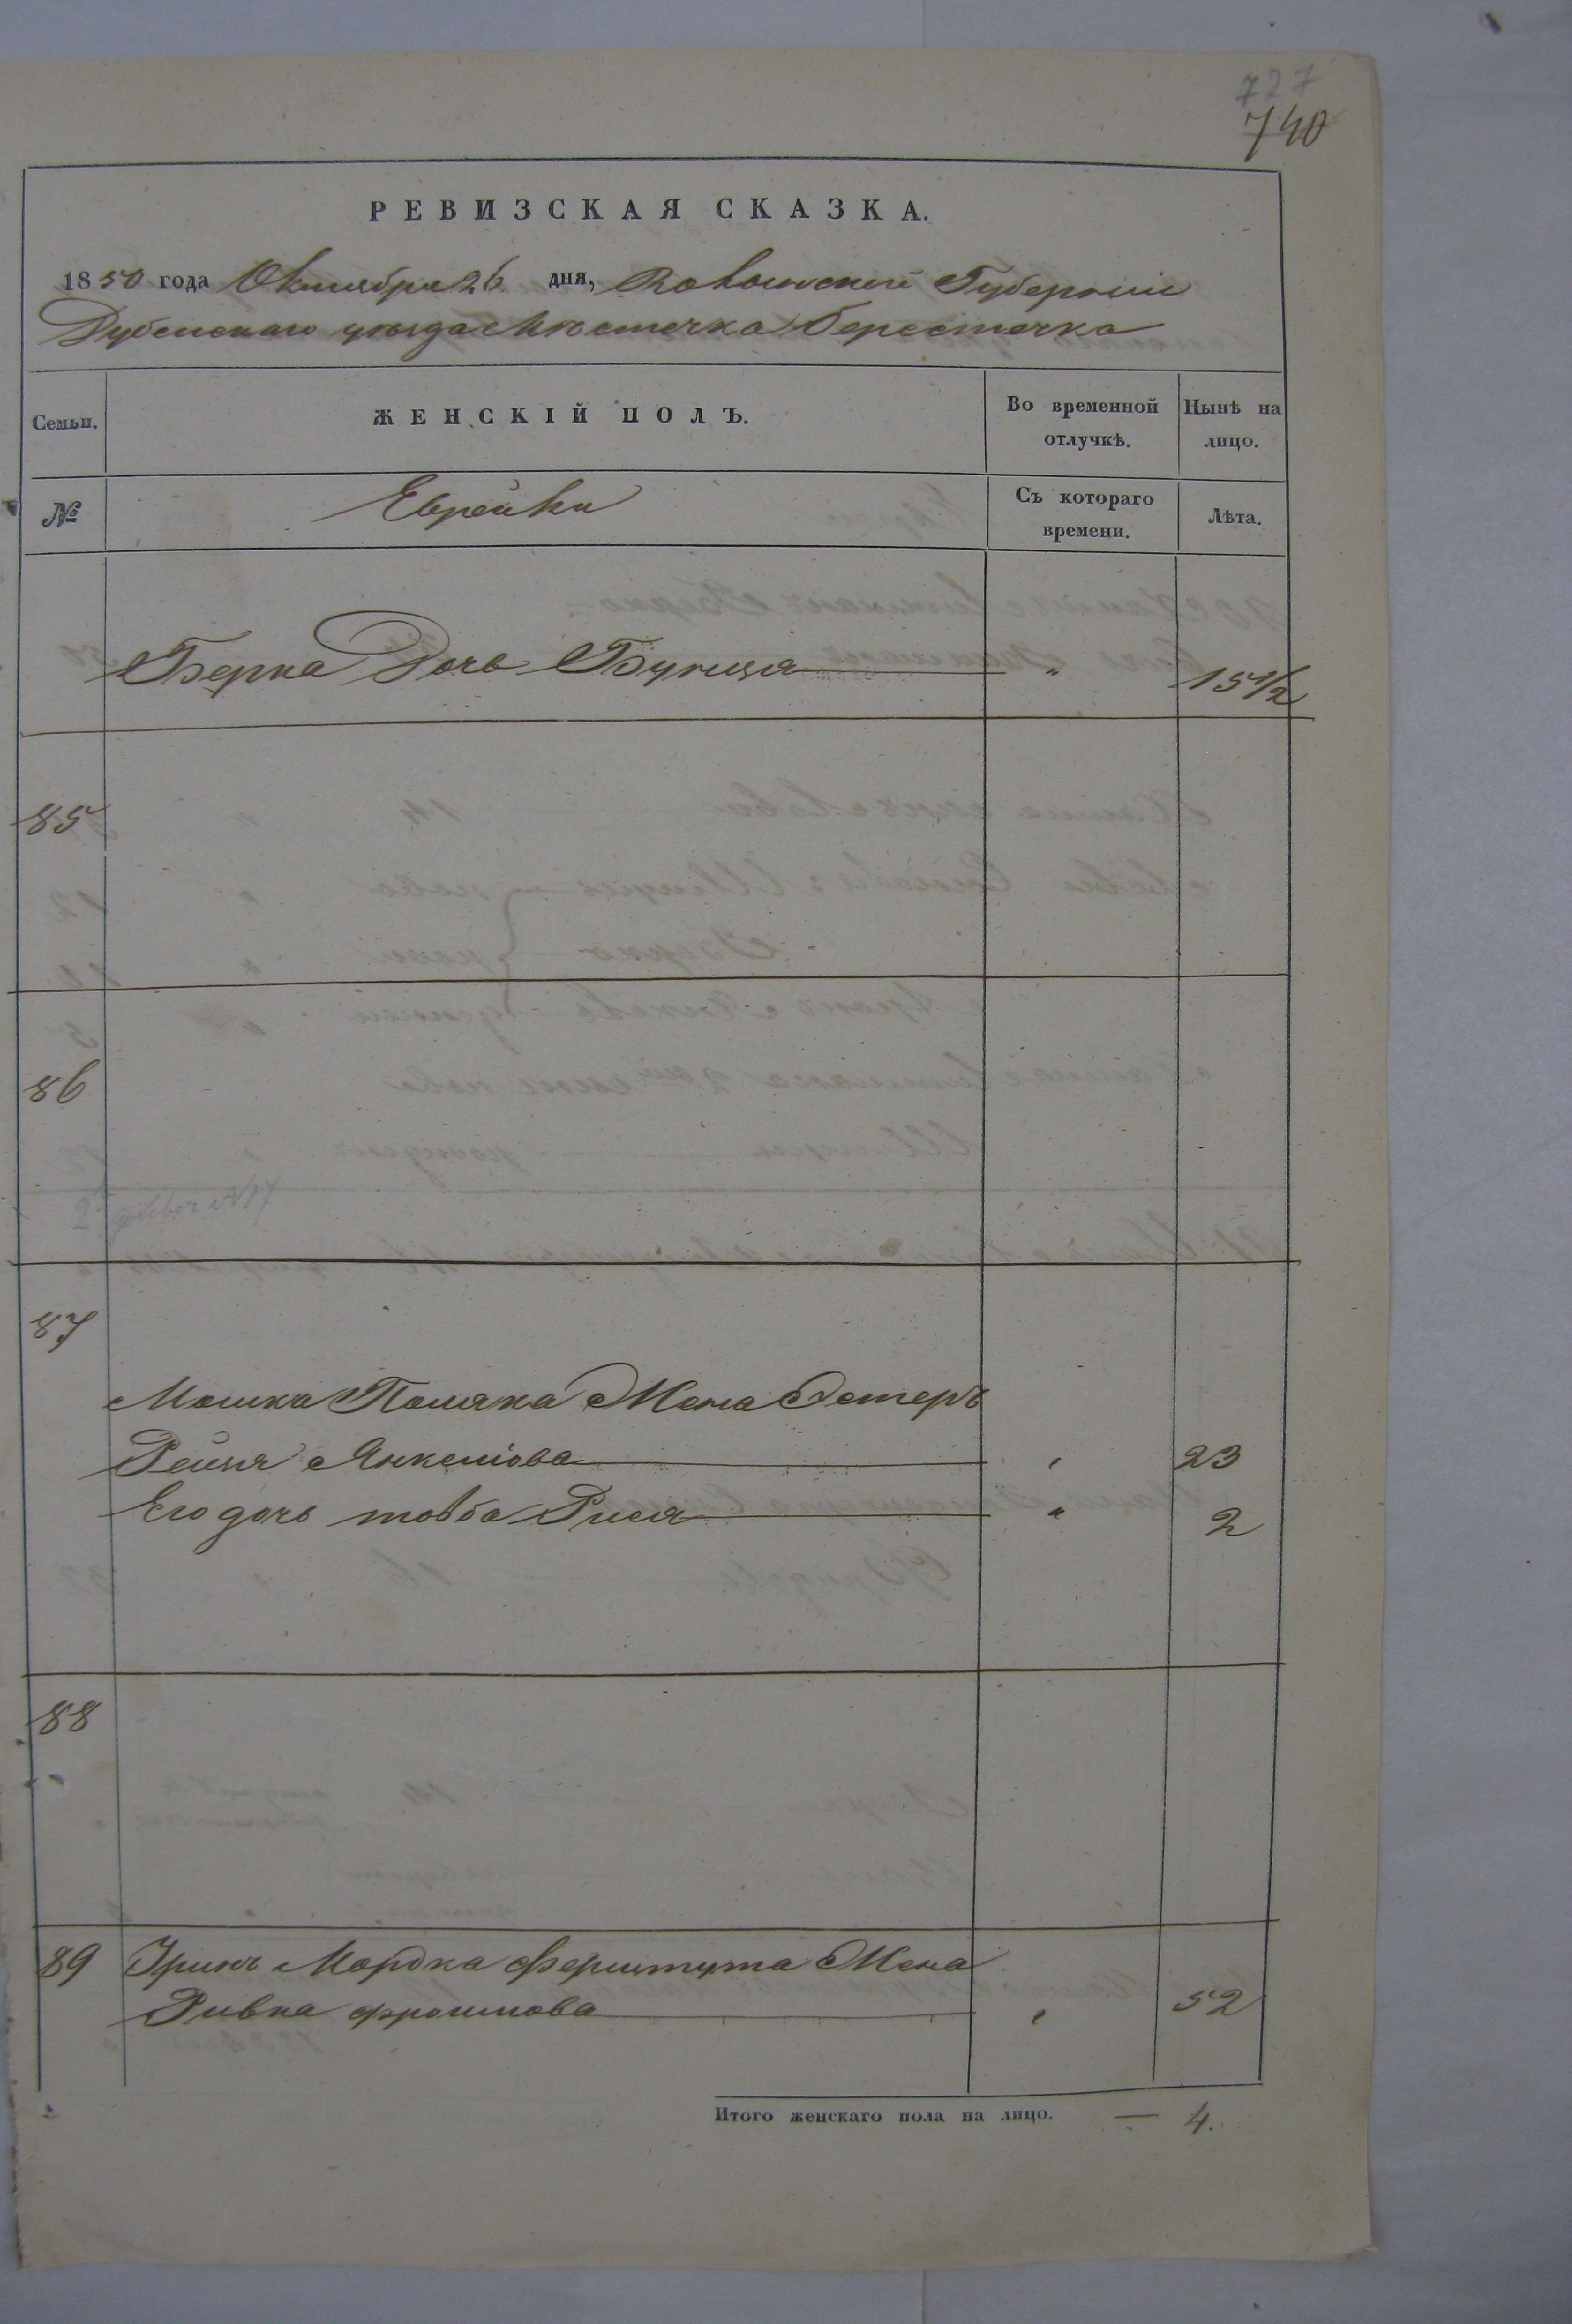 727
740
РЕВИЗСКАЯ СКАЗКА.
1850 года Октября 26 дня, Волынской Губернии
Дубенскаго уѣзда Мѣстечка Берестечка
Семьи. ЖЕНСКІЙ ПОЛЪ. Во временной отлучкѣ. Нынѣ на лицо.
№ Еврейки Съ котораго времени. Лѣта.
Берка Дочь Бунця " 15 1/2
85
86
2
87
Мошка Поляка Жена Эстеръ
Рейзя Янкелiова " 23
Его дочь товба Рися " 2
88
89 Уринъ Мордка Ферштута Жена
Ривка фроимова " 52
Итого женскаго пола на лицо. — 4.